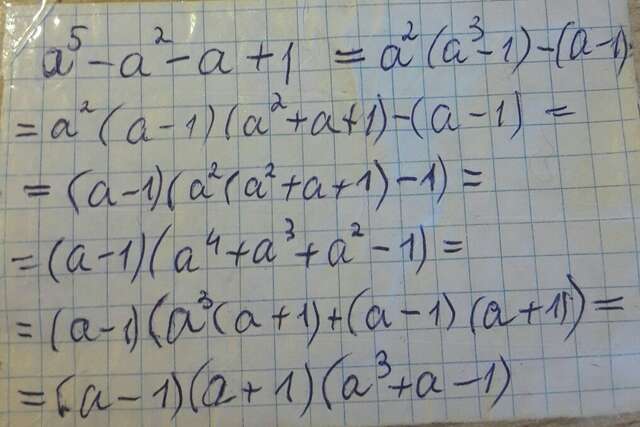 a⁵ - a² - a + 1 = a²(a³-1)-(a-1)=
= a²(a-1)(a²+a+1)-(a-1) =
= (a-1)(a²(a²+a+1)-1) =
= (a-1)(a⁴+a³+a²-1) =
= (a-1)(a³(a+1)+(a-1)(a+1)) =
= (a-1)(a+1)(a³+a-1)